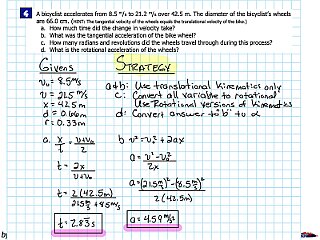 4 A bicyclist accelerates from 8.5 m/s to 21.2 m/s over 42.5 m. The diameter of the bicyclist's wheels
are 66.0 cm. (HINT: The tangential velocity of the wheels equals the translational velocity of the bike.)
a. How much time did the change in velocity take?
b. What was the tangential acceleration of the bike wheel?
c. How many radians and revolutions did the wheels travel through during this process?
d. What is the rotational acceleration of the wheels?
GIVENS
STRATEGY
v₀ = 8.5 m/s
v = 21.5 m/s
x = 42.5 m
d = 0.66 m
r = 0.33 m
a&b: Use translational kinematics only
c: Convert all variable to rotational
Use Rotational versions of kinematics
d: Convert answer to "b" to α
a. x/t = (v+v₀)/2
t = 2x/(v+v₀)
t = 2(42.5m)/(21.5 m/s + 8.5 m/s)
t = 2.83 s
b v² = v₀² + 2ax
a = (v² - v₀²)/2x
a = ((21.5 m/s)² - (8.5 m/s)²)/2(42.5m)
a = 4.59 m/s²
b)